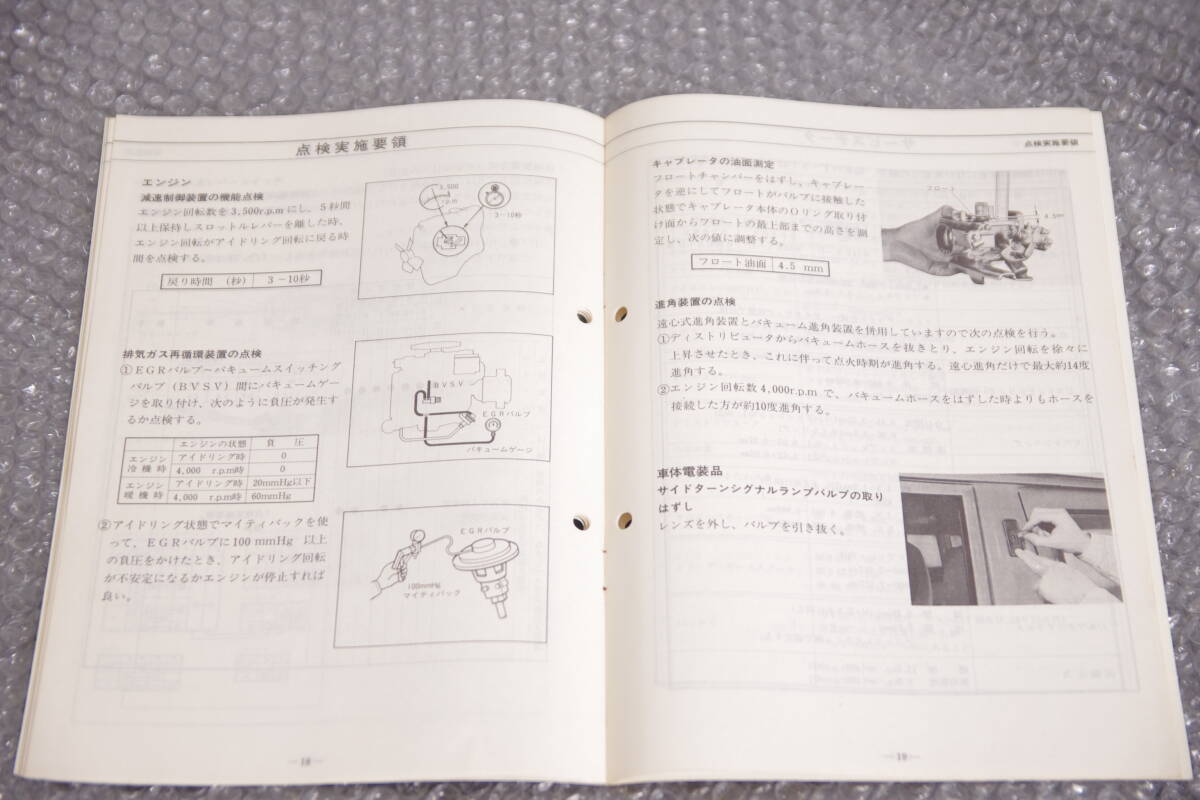 点検実施要領
エンジン
減速制御装置の機能点検
エンジン回転数を3,500r.p.mにし、5秒間
以上保持しスロットルレバーを離した時、
エンジン回転がアイドリング回転に戻る時
間を点検する。
戻り時間 (秒) 3-10秒
3,500
r.p.m
3-10秒
排気ガス再循環装置の点検
①EGRバルブ〜バキュームスイッチング
バルブ(BVSV)間にバキュームゲー
ジを取り付け、次のように負圧が発生す
るか点検する。
エンジンの状態 負 圧
エンジン冷機時 アイドリング時 0
4,000 r.p.m時 0
エンジン暖機時 アイドリング時 20mmHg以下
4,000 r.p.m時 60mmHg
BVSV
EGRバルブ
バキュームゲージ
②アイドリング状態でマイティバックを使
って、EGRバルブに100 mmHg 以上
の負圧をかけたとき、アイドリング回転
が不安定になるかエンジンが停止すれば
良い。
EGRバルブ
100mmHg
マイティバック
—18—
点検実施要領
キャブレータの油面測定
フロートチャンバーをはずし、キャブレー
タを逆にしてフロートがバルブに接触した
状態でキャブレータ本体のOリング取り付
け面からフロートの最上部までの高さを測
定し、次の値に調整する。
フロート油面 4.5 mm
フロート
4.5m
進角装置の点検
遠心式進角装置とバキューム進角装置を併用していますので次の点検を行う。
①ディストリビュータからバキュームホースを抜きとり、エンジン回転を徐々に
上昇させたとき、これに伴って点火時期が進角する。遠心進角だけで最大約14度
進角する。
②エンジン回転数4,000r.p.m で、バキュームホースをはずした時よりもホースを
接続した方が約10度進角する。
車体電装品
サイドターンシグナルランプバルブの取り
はずし
レンズを外し、バルブを引き抜く。
—19—